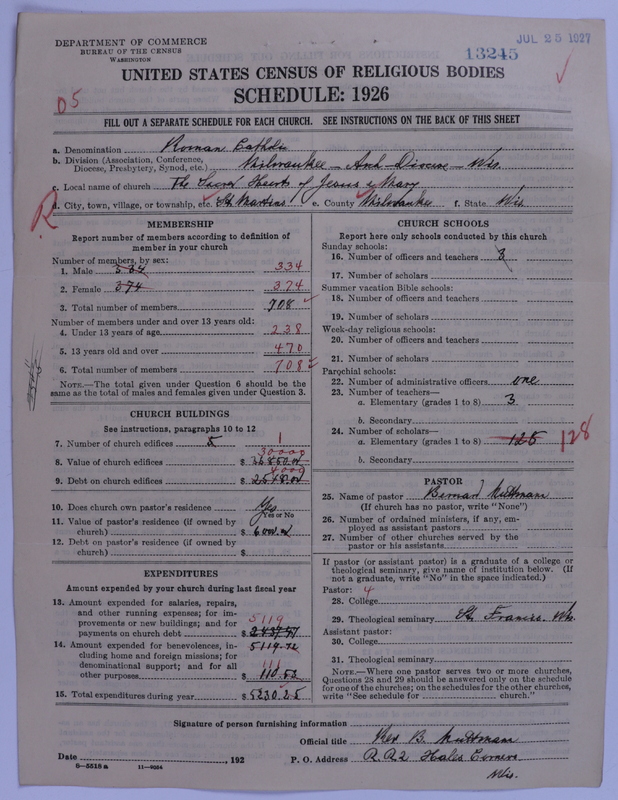 DEPARTMENT OF COMMERCE
BUREAU OF THE CENSUS
WASHINGTON
JUL 25 1927
13245
UNITED STATES CENSUS OF RELIGIOUS BODIES
SCHEDULE: 1926
D5
FILL OUT A SEPARATE SCHEDULE FOR EACH CHURCH. SEE INSTRUCTIONS ON THE BACK OF THIS SHEET
a. Denomination Roman Catholic
b. Division (Association, Conference, Diocese, Presbytery, Synod, etc.) Milwaukee - Arch-Diocese - Wis.
c. Local name of church The Sacred Hearts of Jesus & Mary
d. City, town, village, or township, etc. St. Martins e. County Milwaukee f. State Wis.
R
MEMBERSHIP
Report number of members according to definition of
member in your church
Number of members, by sex:
1. Male 334 334
2. Female 374 374
3. Total number of members 708
Number of members under and over 13 years old:
4. Under 13 years of age 238
5. 13 years old and over 470
6. Total number of members 708
NOTE.—The total given under Question 6 should be the
same as the total of males and females given under Question 3.
CHURCH BUILDINGS
See instructions, paragraphs 10 to 12
7. Number of church edifices 5 1
30000
8. Value of church edifices $
4000
9. Debt on church edifices $
10. Does church own pastor's residence Yes
Yes or No
11. Value of pastor's residence (if owned by
church) $
12. Debt on pastor's residence (if owned by
church) $
EXPENDITURES
Amount expended by your church during last fiscal year
13. Amount expended for salaries, repairs,
and other running expenses; for im-
provements or new buildings; and for 5119
payments on church debt $
14. Amount expended for benevolences, in- 5119.72
cluding home and foreign missions; for
denominational support; and for all 111
other purposes $ 110.53
15. Total expenditures during year $ 5230.25
CHURCH SCHOOLS
Report here only schools conducted by this church
Sunday schools:
16. Number of officers and teachers 3
17. Number of scholars
Summer vacation Bible schools:
18. Number of officers and teachers
19. Number of scholars
Week-day religious schools:
20. Number of officers and teachers
21. Number of scholars
Parochial schools:
22. Number of administrative officers one
23. Number of teachers—
a. Elementary (grades 1 to 8) 3
b. Secondary
24. Number of scholars—
a. Elementary (grades 1 to 8) 125 128
b. Secondary
PASTOR
25. Name of pastor Bernard
(If church has no pastor, write "None")
26. Number of ordained ministers, if any, em-
ployed as assistant pastors
27. Number of other churches served by the
pastor or his assistants
If pastor (or assistant pastor) is a graduate of a college or
theological seminary, give name of institution below. (If
not a graduate, write "No" in the space indicated.)
Pastor: 4
28. College
29. Theological seminary St. Francis, Wis.
Assistant pastor:
30. College
31. Theological seminary
NOTE.—Where one pastor serves two or more churches,
Questions 28 and 29 should be answered only on the schedule
for one of the churches; on the schedules for the other churches,
write "See schedule for church."
Signature of person furnishing information
Official title Rev. B.
Date , 192 P. O. Address R.R.2 Hales Corners
Wis.
8—5518 a 11—9034